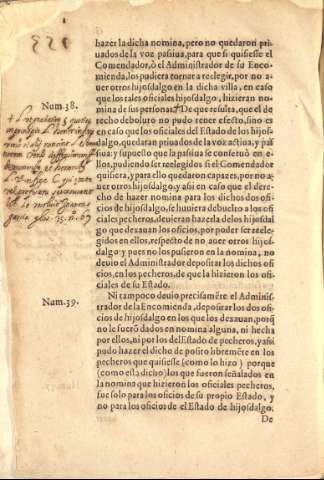 hazer la dicha nomina, pero no quedaron pri-
uados de la voz passiua, para que si quisiesse el
Comendador, ò el Administrador de su Enco-
mienda, los pudiera tornar a reelegir, por no a-
uer otros hijosdalgo en la dicha villa, en caso
que los tales oficiales hijosdalgo, hizieran no-
mina de sus personas. De que resulta, que el de
recho deboluto no pudo tener efecto, sino es
en caso que los oficiales del Estado de los hijos-
dalgo, quedaran priuados de la voz actiua, y pas
siua: y supuesto que la passiua se conseruò en e-
llos, pudiendo ser reelegidos si el Comendador
quisiera, y para ello quedaron capazes, por no a-
uer otros hijosdalgo, y assi en caso que el dere-
cho de hazer nomina para los dichos dos ofi-
cios de hijosdalgo, se huuiera debuelto a los ofi
ciales pecheros, deuieran hazerla de los hijosdal
go que dexauan los oficios, por poder ser reele-
gidos en ellos, respecto de no auer otros hijos-
dalgo: y pues no los pusieron en la nomina, no
deuio el Administrador depositar los dichos ofi
cios, en los pecheros, de que la hizieron los ofi-
ciales de su Estado.
Num. 38.
Ni tampoco deuio precisamẽte el Adminis-
trador de la Encomienda, depositar los dos ofi-
cios de hijosdalgo en los que los dexauan, porq̃
no le fuerõ dados en nomina alguna, ni hecha
por ellos, ni por los del Estado de pecheros, y assi
pudo hazer el dicho deposito libremẽte en los
pecheros que quisiesse (como lo hizo) porque
(como esta dicho) los que fueron señalados en
la nomina que hizieron los oficiales pecheros,
fue solo para los oficios de su propio Estado, y
no para los oficios de el Estado de hijosdalgo.
Num. 39.
De